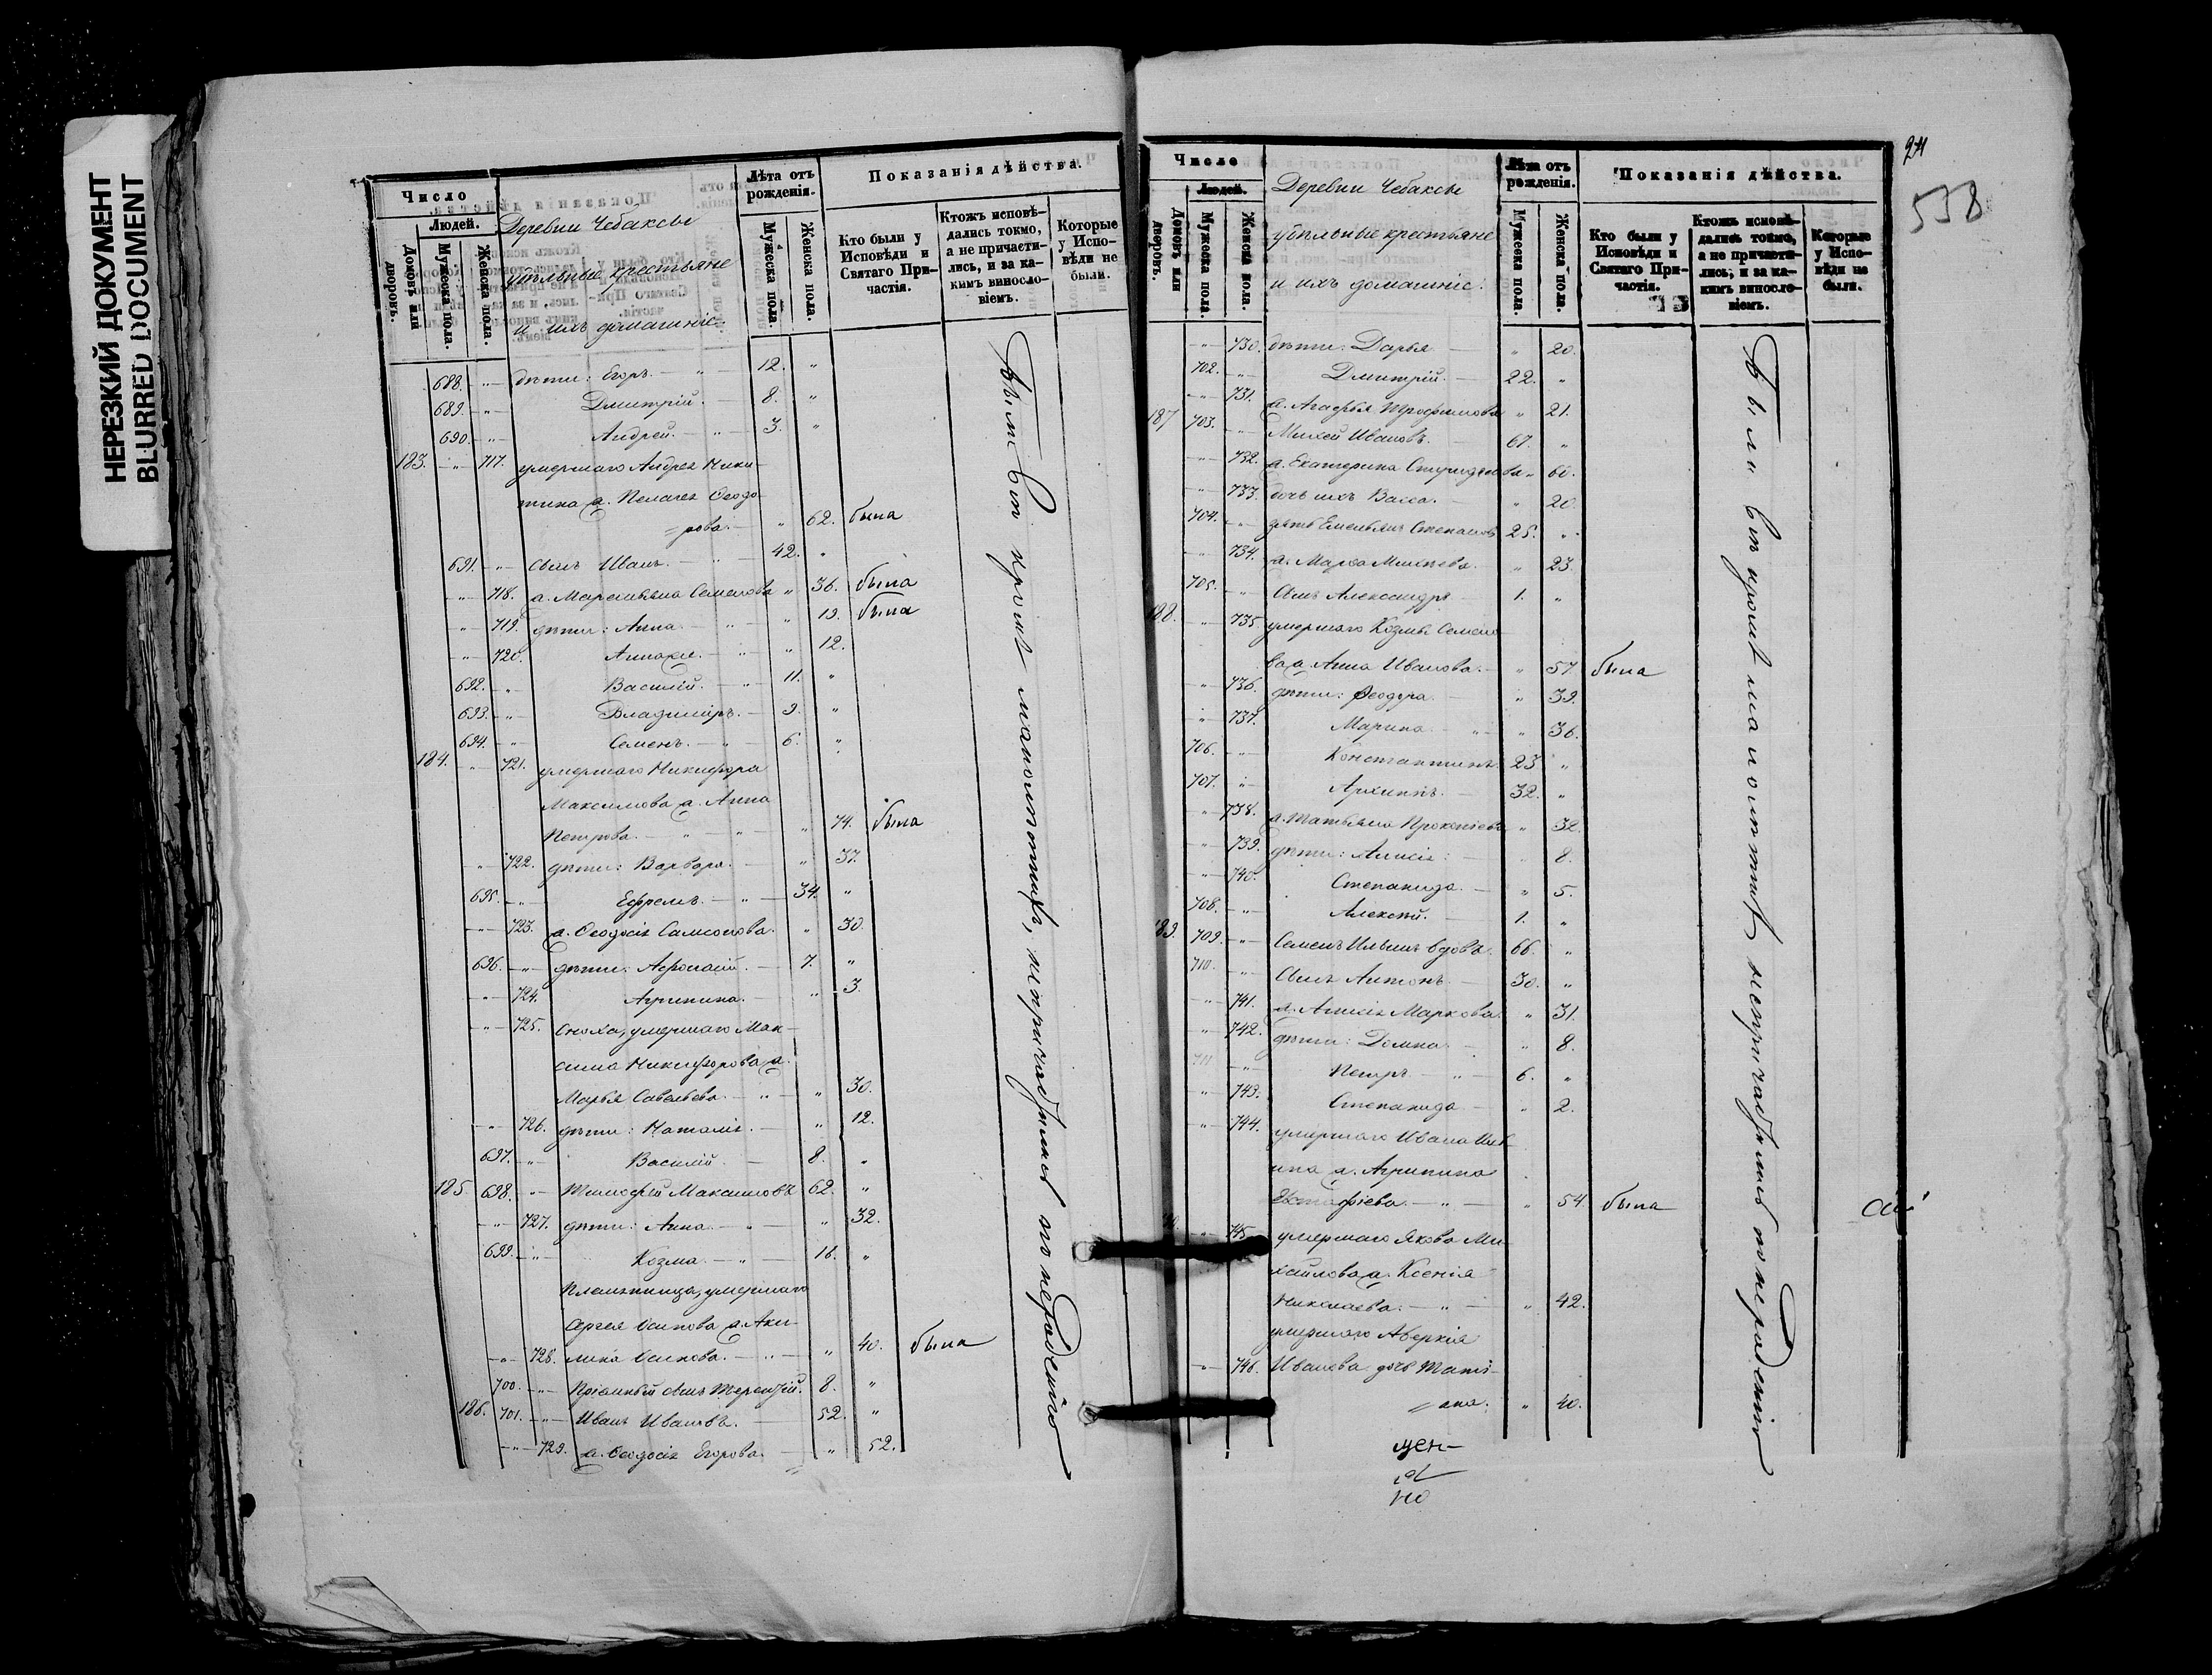 НЕРЕЗКИЙ ДОКУМЕНТ
BLURRED DOCUMENT
Число
Людей.
Домовъ или дворовъ.
Мужеска пола.
Женска пола.
Деревни Чебаксы
удѣльные крестьяне
и ихъ домашніе
Лѣта отъ рожденія.
Мужеска пола.
Женска пола.
Показанія дѣйства.
Кто были у Исповѣди и Святаго Причастія.
Ктожъ исповѣдались токмо, а не причастились, и за какимъ винословіемъ.
Которые у Исповѣди не были.
688. -"- дѣти: Егоръ. -"- 12. "
689. -"- Дмитрій. - 8. "
690. -"- Андрей. -"- 3. "
183. -"- 717. умершаго Андрея Ники-
тина ж. Пелагея Ѳеодо-
=рова. - " 62. была
691. -"- Сынъ Иванъ. - 42. "
-"- 718. ж. Маремьяна Семенова " 36. была
-"- 719. дѣти: Анна. " 19. была
-"- 720. " 12.
692. -"- Василій. -"- 11. "
693. -"- Владиміръ. - 9. "
694. -"- Семенъ. -"- 6. "
184. -"- 721. умершаго Никифора
Максимова ж. Анна
Петрова. -"-"- " 74. была
" 722. дѣти: Варвара. - " 37.
695. -"- Ефремъ. -"- 34. "
-"- 723. ж. Ѳеодосія Самсонова. " 30.
696. -"- дѣти: Аѳонасій. - 7. "
-"- 724. Агрипина. - " 3.
-"- 725. Сноха, умершаго Мак-
сима Никифорова ж.
Марья Савельева. -"- " 30.
-"- 726. дѣти: Наталія. - " 12.
697. -"- Василій. - 8. "
185. 698. -"- Тимофей Максимовъ 62. "
-"- 727. дѣти: Анна. -"- " 32.
699. -"- Козма. -"- 16. "
Племянница, умершаго
Сергея Осипова ж. Аку-
-"- 728. лина Осипова. -"- " 40. была
700. -"- Пріемный сынъ Терентій. 8. "
186. 701. -"- Иванъ Ивановъ. - 52. "
-"- 729. ж. Ѳеодосія Егорова. - " 52.
Были въ прошлом
24
538
Число
Людей.
Домовъ или дворовъ.
Мужеска пола.
Женска пола.
Деревни Чебаксы
удѣльные крестьяне
и ихъ домашніе:
Лѣта отъ рожденія.
Мужеска пола.
Женска пола.
Показанія дѣйства.
Кто были у Исповѣди и Святаго Причастія.
Ктожъ исповѣдались токмо, а не причастились, и за какимъ винословіемъ.
Которые у Исповѣди не были.
-"- 730. дѣти: Дарья - " 20.
702. -"- Дмитрій. - 22. "
-"- 731. ж. Агафья Трофимова " 21.
187 703. -"- Михей Ивановъ. - 61. "
-"- 732. ж. Екатерина " 60.
-"- 733. дочь ихъ Васса. - " 20.
704. -"- зять Емельянъ Степановъ 25. "
-"- 734. ж. Марѳа Михѣева. " 23.
705. -"- Сынъ Александръ 1. "
188. -"- 735. умершаго Козмы Семено-
ва ж. Анна Иванова. - " 57. была
-"- 736. дѣти: Ѳеодора. - " 39.
-"- 737. Марина. -"- " 36.
706. -"- Константинъ. 23 "
707. -"- Архиппъ. - 32. "
-"- 738. ж. Татьяна Прокопіева " 32.
-"- 739. дѣти: " 8.
-"- 740. Степанида. - " 5.
708. -"- Алексѣй. - 1. "
189. 709. -"- Семенъ Ильинъ вдовъ. 66. "
710. -"- Сынъ Антонъ. - 30. "
-"- 741. ж. Анисія Маркова. " 31.
-"- 742. дѣти: Домна. - " 8.
711 -"- Петръ. -"- 6. "
-"- 743. Степанида. - " 2.
-"- 744. умершаго Ивана Иль-
ина ж. Агрипина
Евстафіева. -"- " 54. была
-"- 745. умершаго Якова Ми-
хайлова ж. Ксенія
Николаева. -"- " 42.
умершаго Аверкія
-"- 746. Иванова дочь Тать-
=яна. " 40.